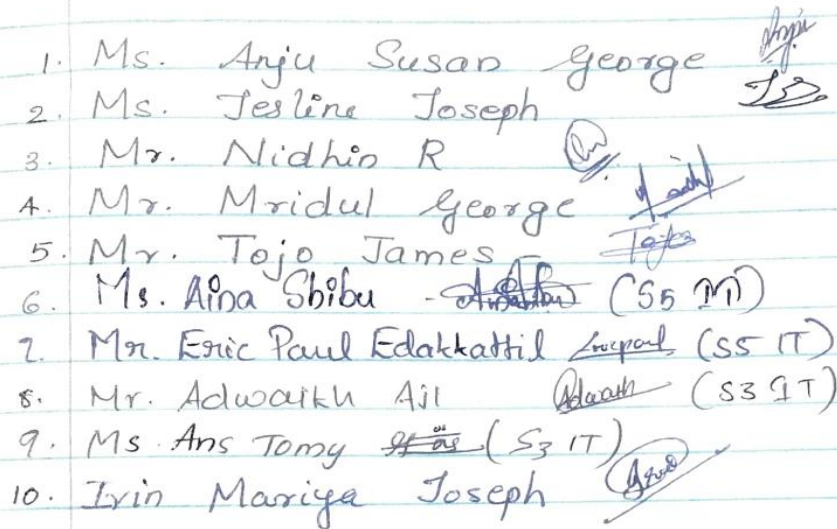 1. Ms. Anju Susan George Anju
2. Ms. Jesline Joseph
3. Mr. Nidhin R
4. Mr. Mridul George
5. Mr. Tojo James Tojo
6. Ms. Aina Shibu - (S5 IT)
7. Mr. Eric Paul Edakkattil Ericpaul (S5 IT)
8. Mr. Adwaith Ajl Adwaith (S3 IT)
9. Ms. Ans Tomy (S3 IT)
10. Irin Mariya Joseph